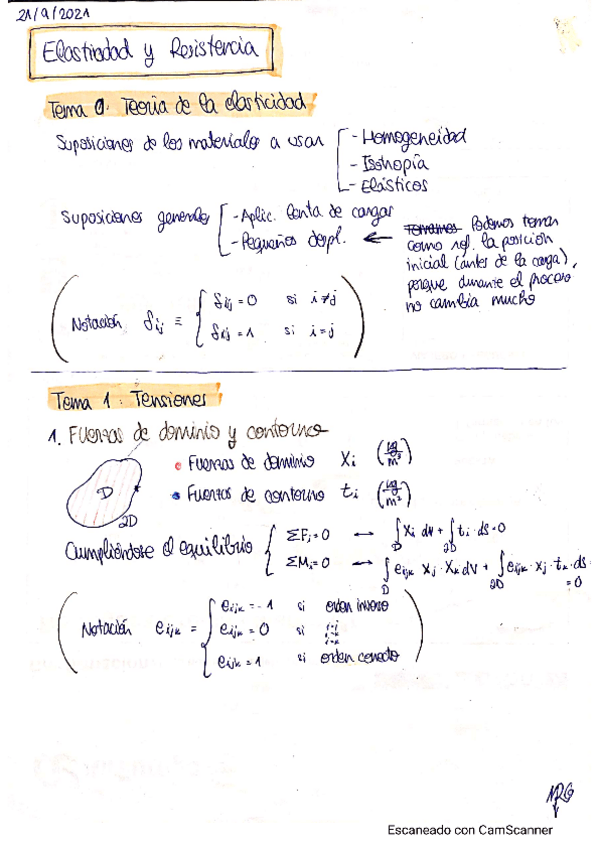 21/9/2021
Elasticidad y Resistencia
Tema 0. Teoría de la elasticidad
Suposiciones de los materiales a usar
- Homogeneidad
- Isotropía
- Elásticos
Suposiciones generales
- Aplic. lenta de cargas
- Pequeños despl. ←
Tomamos Podemos tomar
como ref. la posición
inicial (antes de la carga),
porque durante el proceso
no cambia mucho
Notación δij ≡
δij = 0 si i≠j
δij = 1 si i=j
Tema 1: Tensiones
1. Fuerzas de dominio y contorno
D
∂D
• Fuerzas de dominio Xi (kg/m³)
• Fuerzas de contorno ti (kg/m²)
Cumpliéndose el equilibrio
ΣFi=0 → ∫D Xi dV + ∫∂D ti·dS=0
ΣMi=0 → ∫D eijk Xj·Xk dV + ∫∂D eijk·xj·tk·ds =0
Notación eijk =
eijk = -1 si orden inverso
eijk = 0 si
eijk = 1 si orden correcto
NRG
Escaneado con CamScanner